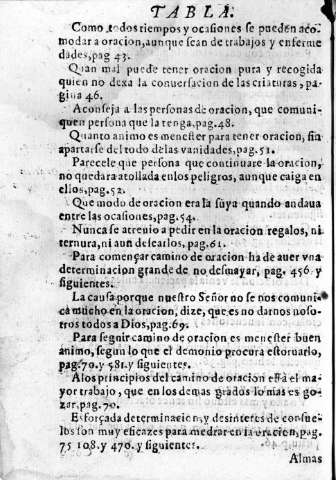 TABLA.
Como todos tiempos y ocasiones se pueden aco-
modar a oracion, aunque sean de trabajos y enferme
dades, pag 43.
Quan mal puede tener oracion pura y recogida
quien no dexa la conuersacion de las criaturas, pa-
gina 46.
Aconseja a las personas de oracion, que comuni-
quen persona que la tenga, pag. 48.
Quanto animo es menester para tener oracion, sin
apartarse del todo de las vanidades, pag. 51.
Parecele que persona que continuare la oracion,
no quedara atollada en los peligros, aunque caiga en
ellos, pag. 52.
Que modo de oracion era la suya quando andaua
entre las ocasiones, pag. 54.
Nunca se atreuio a pedir en la oracion regalos, ni
ternura, ni aun desearlos, pag. 61.
Para començar camino de oracion ha de auer vna
determinacion grande de no desmayar, pag. 456 y
siguientes.
La causa porque nuestro Señor no se nos comuni
ca mucho en la oracion, dize, que es no darnos noso-
tros todos a Dios, pag. 69.
Para seguir camino de oracion es menester buen
animo, segun lo que el demonio procura estoruarlo,
pag. 70. y 581. y siguientes.
A los principios del camino de oracion està el ma
yor trabajo, que en los demas grados lo mas es go-
zar, pag. 70.
Esforçada determinacion, y desinteres de consue-
los son muy eficazes para medrar en la oracion, pag.
75 108. y 470. y siguientes.
Almas